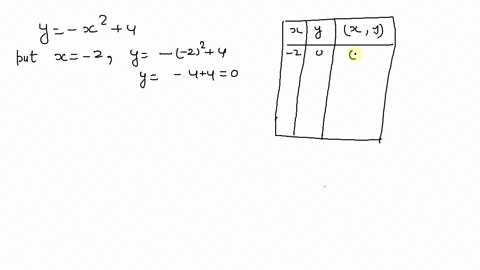 y = -x² + 4
put x = -2, y = -(-2)² + 4
y = -4+4 = 0
x y (x, y)
-2 0 (